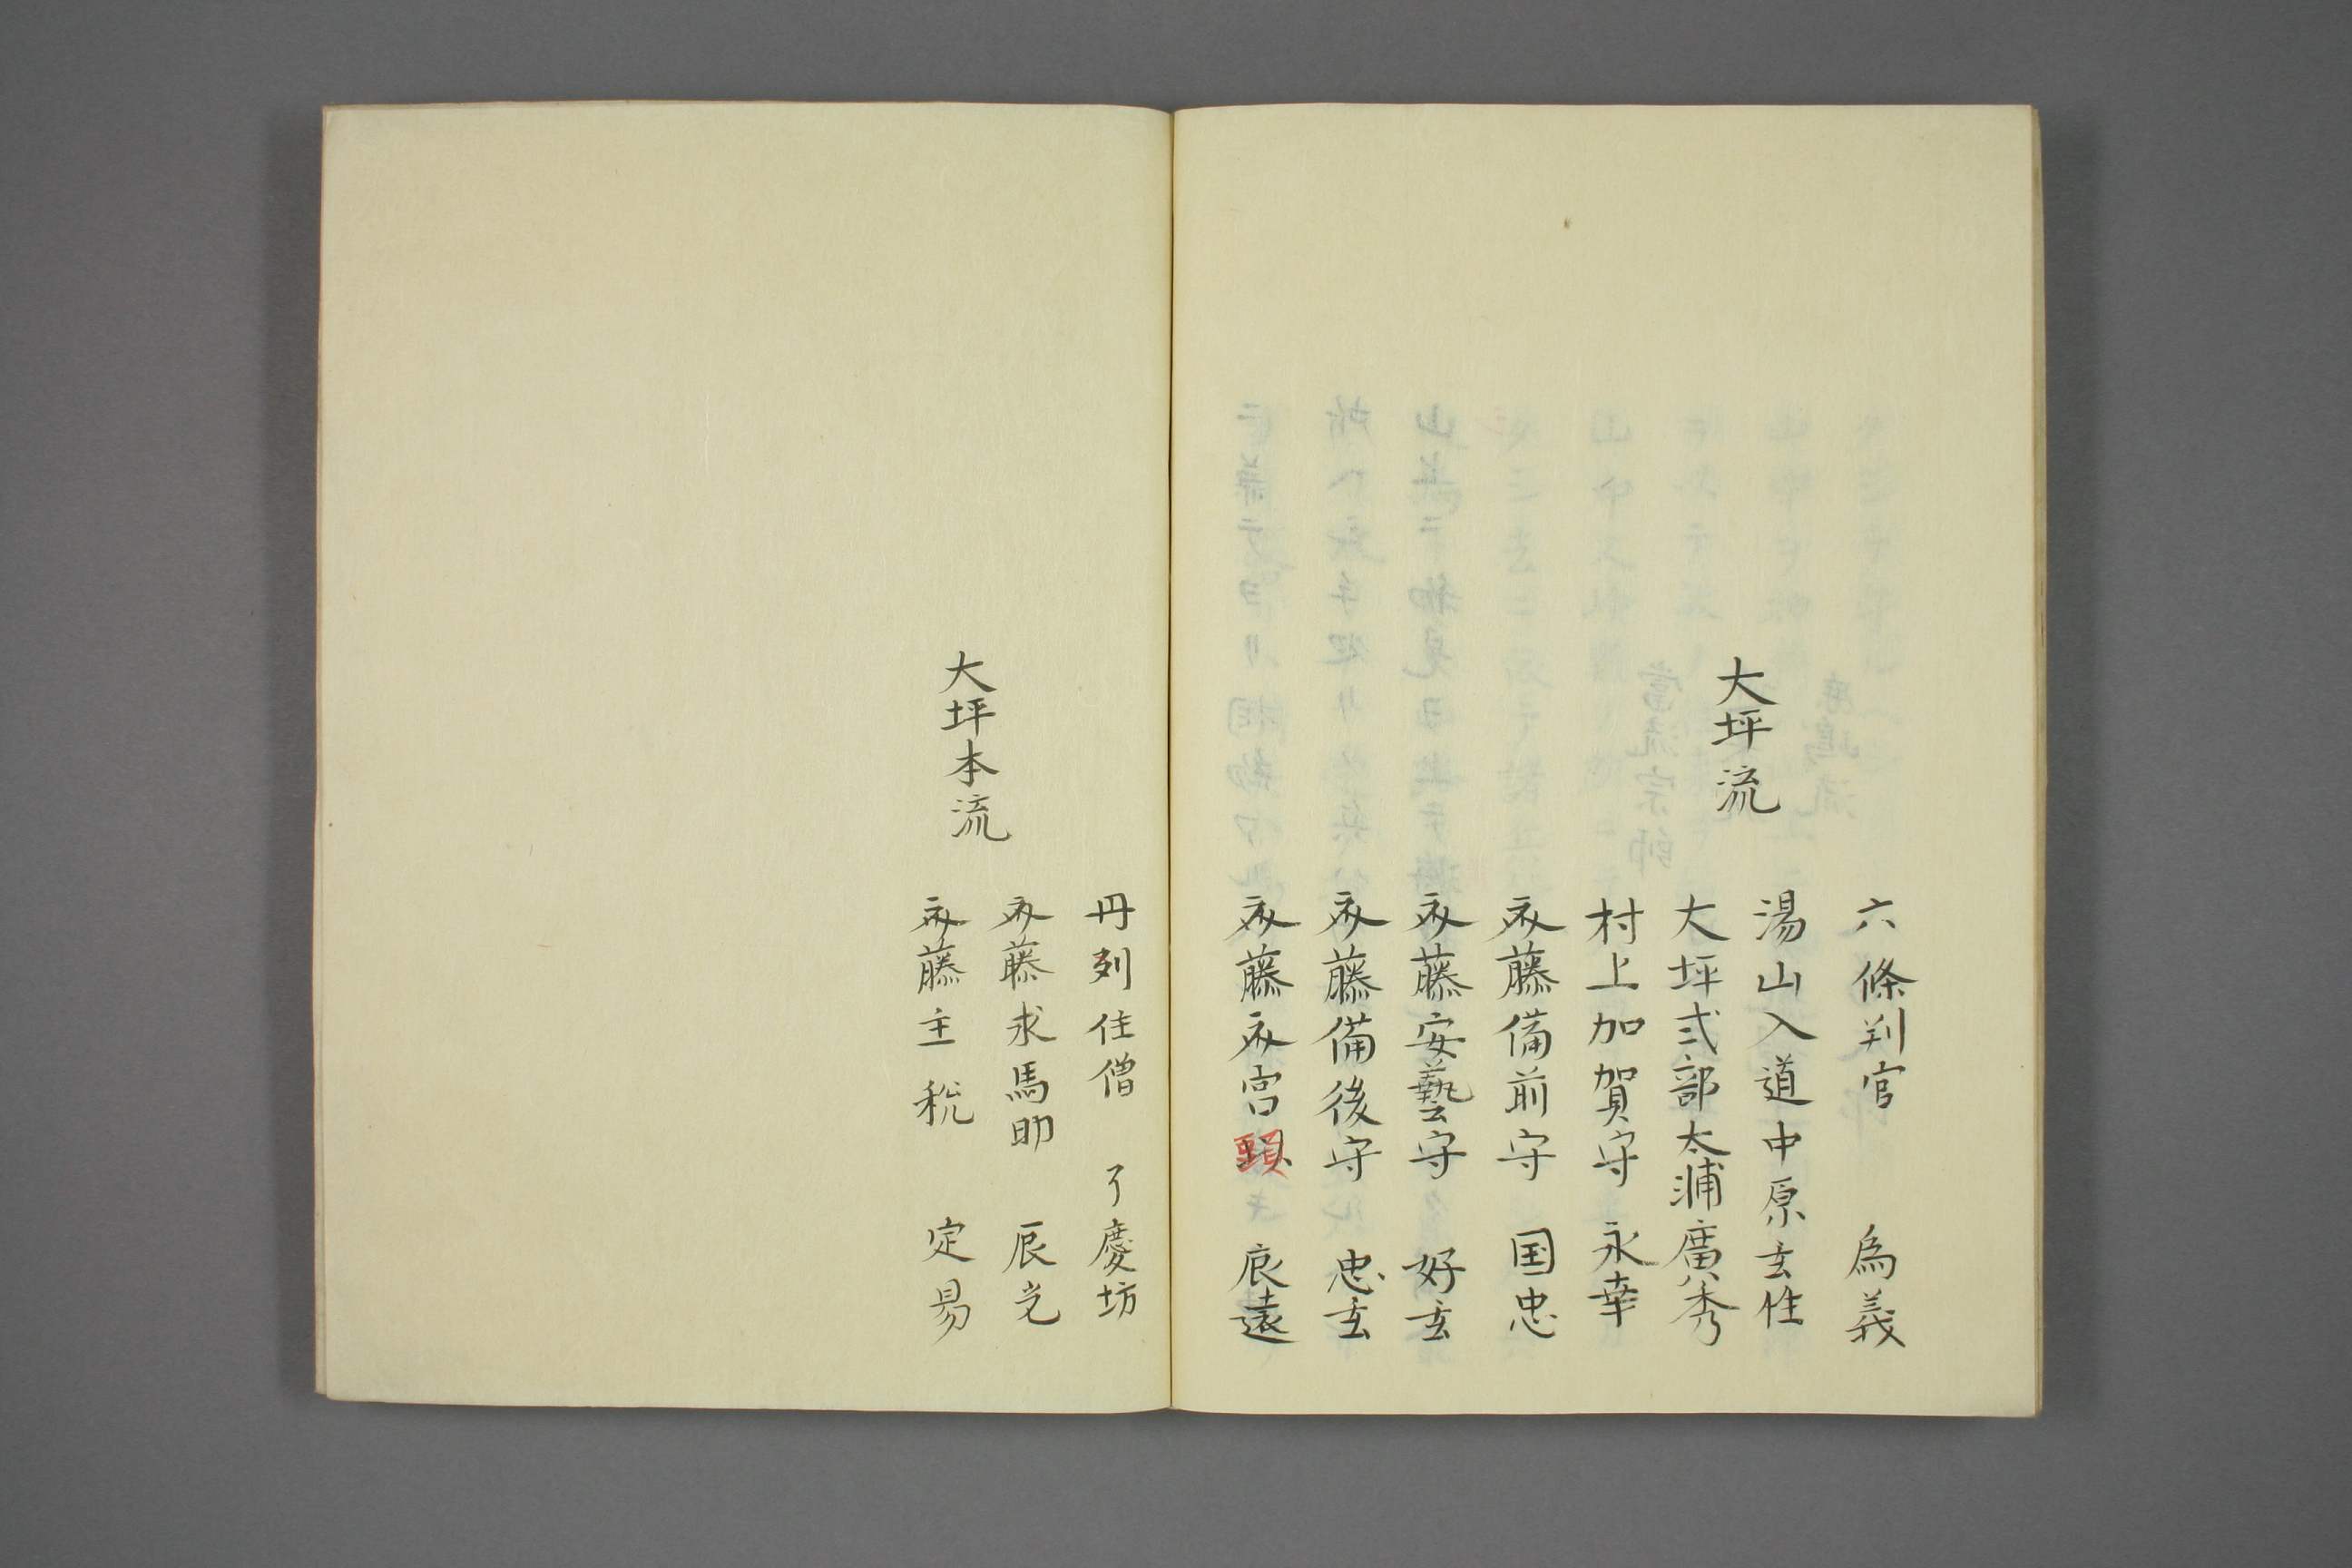 六條判官 為義
湯山入道中原玄性
大坪流
大坪式部太浦廣秀
村上加賀守 永幸
斎藤備前守 国忠
斎藤安藝守 好玄
斎藤備後守 忠玄
斎藤斎宮頭 辰遠
丹列住僧 了慶坊
斎藤求馬助 辰光
大坪本流
斎藤主税 定易